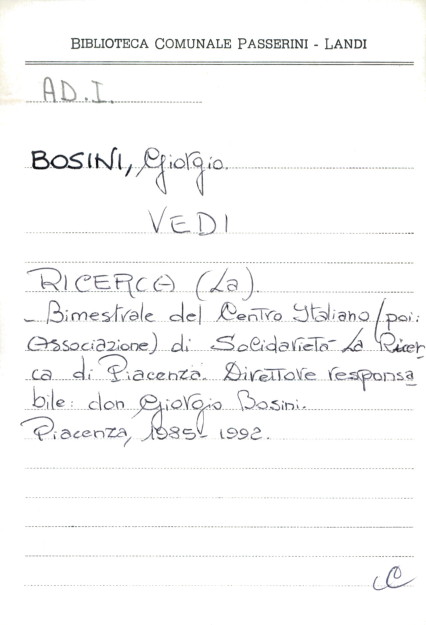 BIBLIOTECA COMUNALE PASSERINI - LANDI
AD.I.
BOSINI, Giorgio.
VEDI
RICERCA (La).
- Bimestrale del Centro Italiano (poi:
Associazione) di Solidarietà La Ricer
ca di Piacenza. Direttore responsa
bile: don Giorgio Bosini.
Piacenza, 1985-1992.
C